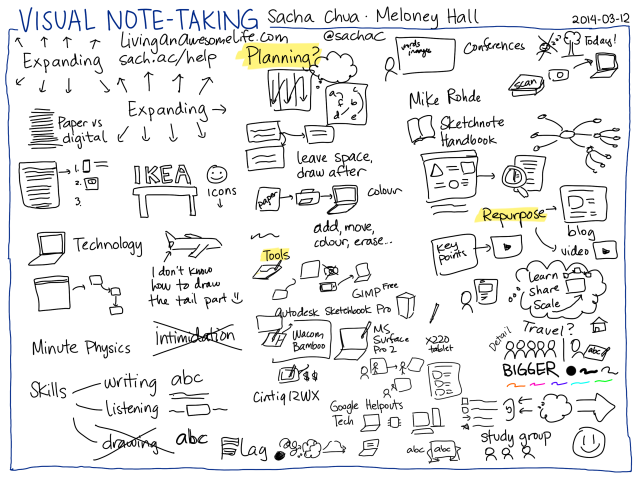 VISUAL NOTE-TAKING Sacha Chua · Meloney Hall 2014-03-12
LivingAnAwesomeLife.com @sachac
sach.ac/help
Expanding
Expanding
Paper vs digital
1.
2.
3.
IKEA
Icons
Technology
I don't know
how to draw
the tail part
Minute Physics
Intimidation
Skills
writing abc
listening
drawing abc
Planning?
a c
f b
d e
leave space,
draw after
paper
colour
add, move,
colour, erase...
Tools
GIMP Free
Autodesk Sketchbook Pro
Wacom
Bamboo
MS
Surface
Pro 2
X220
tablet
Cintiq 12WX
$$
Google Helpouts
Tech
Lag
words
images
Conferences
Today!
scan
Mike Rohde
Sketchnote
Handbook
Repurpose
blog
video
Key
points
Learn
share
Scale
Travel?
Detail
abc
BIGGER
abc
abc
study group